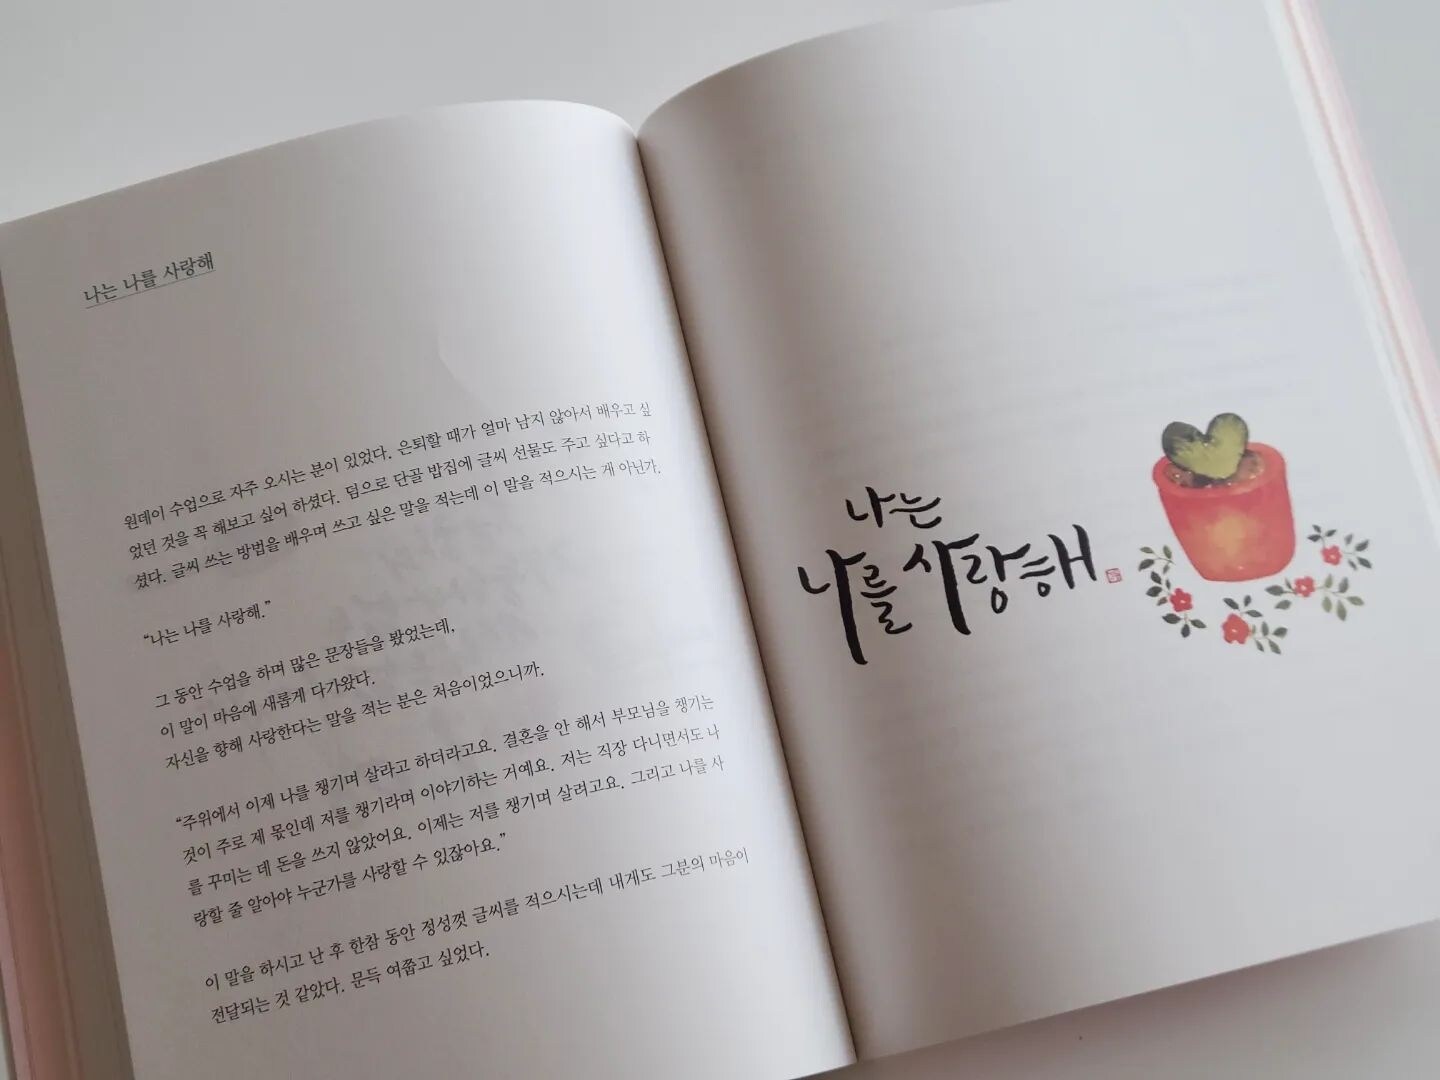 나는 나를 사랑해
원데이 수업으로 자주 오시는 분이 있었다. 은퇴할 때가 얼마 남지 않아서 배우고 싶
었던 것을 꼭 해보고 싶어 하셨다. 덤으로 단골 밥집에 글씨 선물도 주고 싶다고 하
셨다. 글씨 쓰는 방법을 배우며 쓰고 싶은 말을 적는데 이 말을 적으시는 게 아닌가.
“나는 나를 사랑해.”
그 동안 수업을 하며 많은 문장들을 봤었는데,
이 말이 마음에 새롭게 다가왔다.
자신을 향해 사랑한다는 말을 적는 분은 처음이었으니까.
“주위에서 이제 나를 챙기며 살라고 하더라고요. 결혼을 안 해서 부모님을 챙기는
것이 주로 제 몫인데 저를 챙기라며 이야기하는 거예요. 저는 직장 다니면서도 나
를 꾸미는 데 돈을 쓰지 않았어요. 이제는 저를 챙기며 살려고요. 그리고 나를 사
랑할 줄 알아야 누군가를 사랑할 수 있잖아요.”
이 말을 하시고 난 후 한참 동안 정성껏 글씨를 적으시는데 내게도 그분의 마음이
전달되는 것 같았다. 문득 여쭙고 싶었다.
나는
나를 사랑해